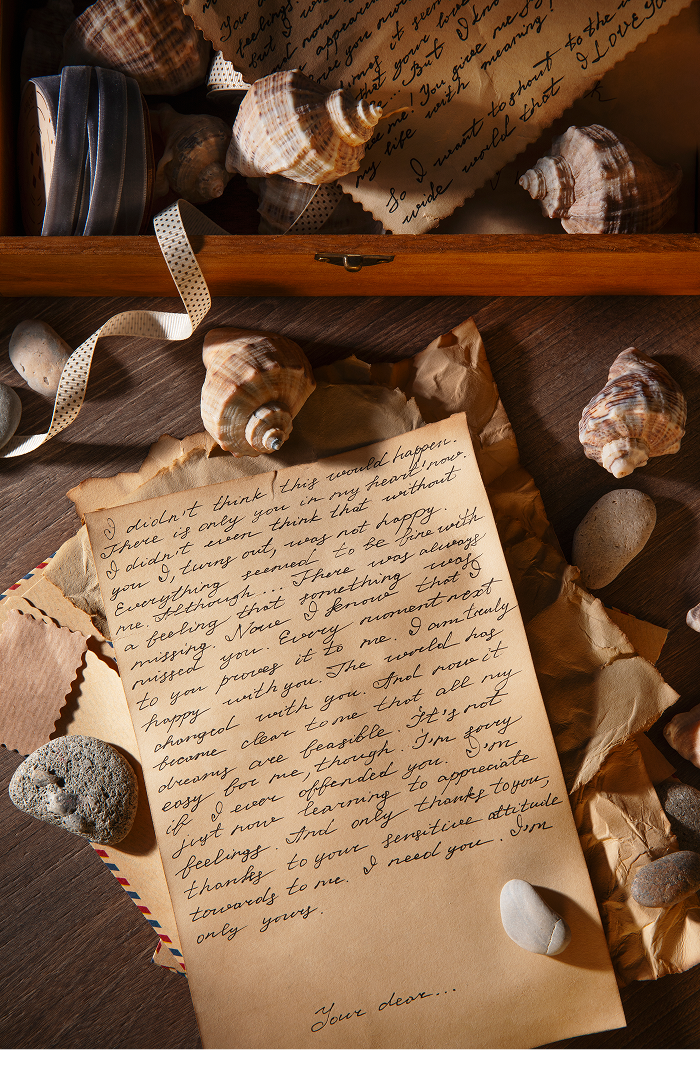 You
feelings.
but I w
and now
appeared
love you now
sometimes it seem
that your love
... But I know
me! You give me
my life with meaning!
So I want to shout to the w
wide world that I LOVE YOU
I didn't think this would happen.
There is only you in my heart now.
I didn't even think that without
you I, turns out, was not happy.
Everything seemed to be fine with
me. Although... There was always
a feeling that something was
missing. Now I know that I
missed you. Every moment next
to you proves it to me. I am truly
happy with you. The world has
changed with you. And now it
became clear to me that all my
dreams are feasible. It's not
easy for me, though. I'm sorry
if I ever offended you. I'm
just now learning to appreciate
feelings. And only thanks to you,
thanks to your sensitive attitude
towards to me. I need you. I'm
only yours.
Your dear...